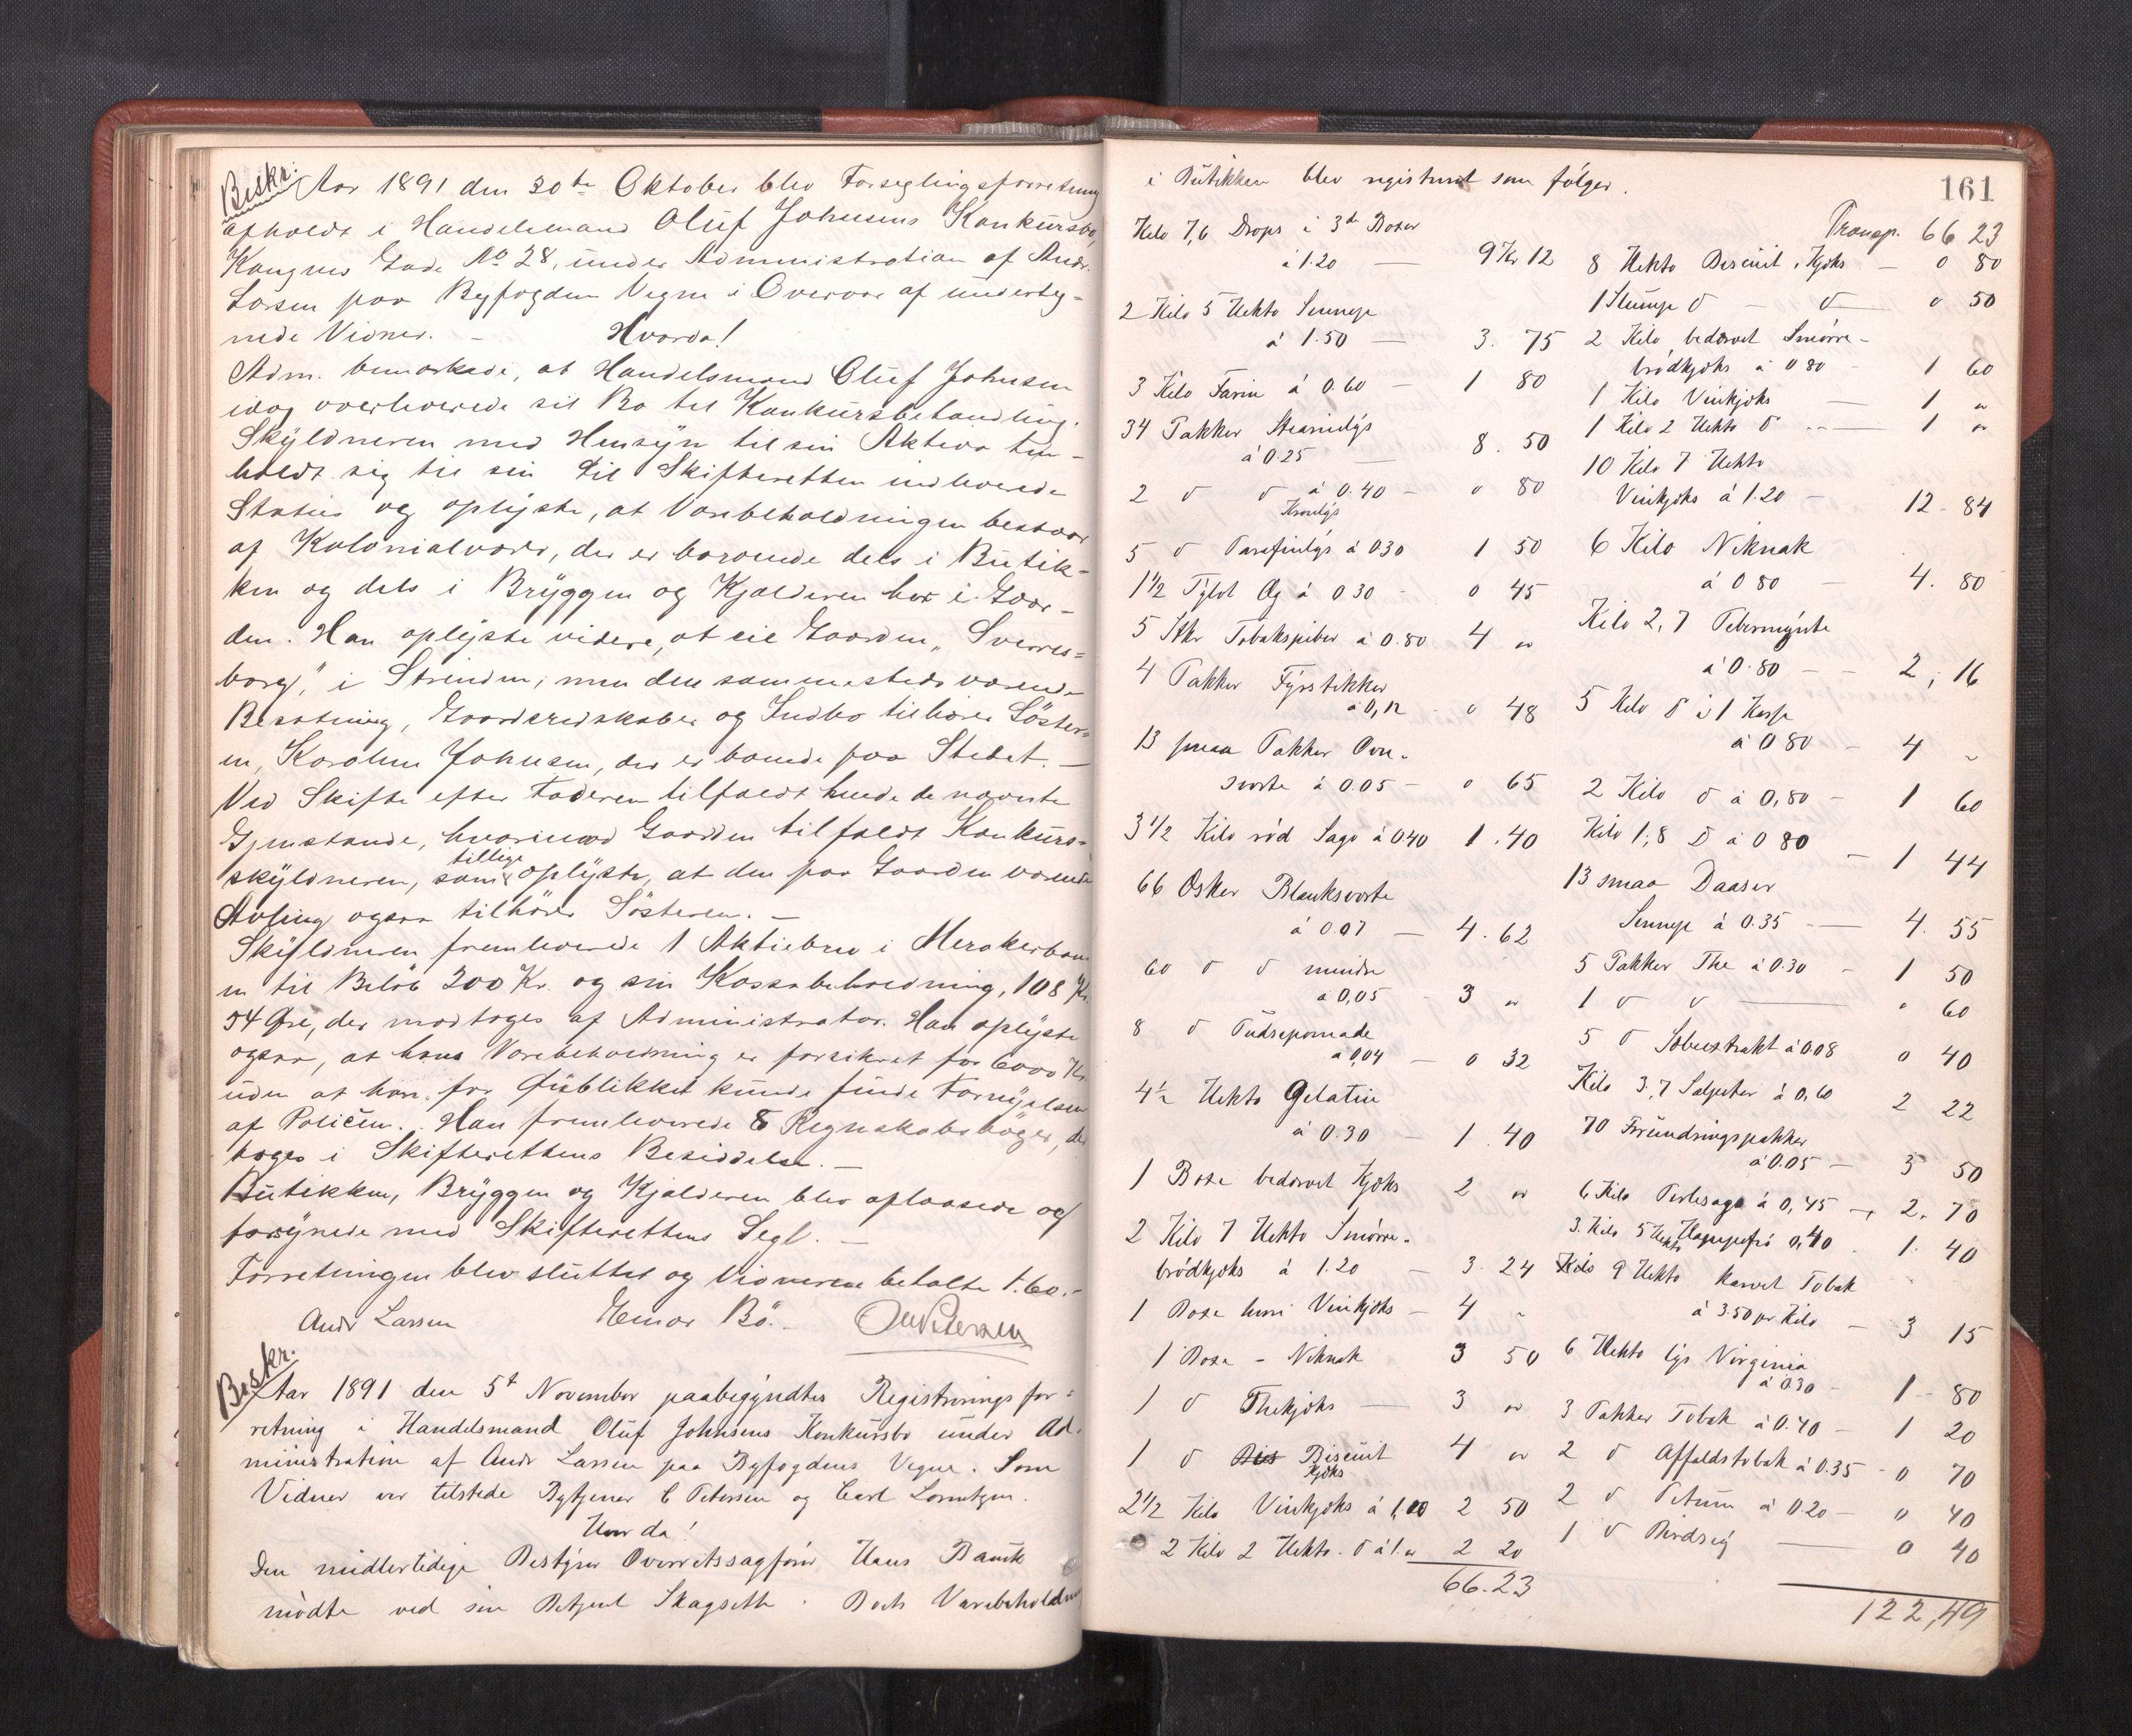 Beskr:
Aar 1891 den 30te Oktober blev Forseglingsforretning
afholdt i Handelsmand Oluf Johnsens Konkursbo,
Kongens Gade No 28, under Administration af Andr.
Larsen paa Byfogdens Vegne i Overvær af underteg-
nede Vidner. – Hvorda!
Adm. bemærkede, at Handelsmand Oluf Johnsen
idag overleverede sit Bo til Konkursbehandling.
Skyldneren med Hensyn til sin Aktiva hen-
holdt sig til sin til Skifteretten indleverede
Status og oplyste, at Varebeholdningen bestaar
af Kolonialvarer, der er beroende dels i Butik-
ken og dels i Bryggen og Kjælderen her i Gaar-
den. Han oplyste videre, at eie Gaarden „Sverres-
borg", i Strinden; men den sammesteds værende
Besætning, Gaardsredskaber og Indbo tilhører Söster-
en, Karoline Johnsen, der er boende paa Stedet. –
Ved Skifte efter Faderen tilfaldt hende de nævnte
Gjenstande, hvorimod Gaarden tilfaldt Konkurs-
skyldneren, som tillige oplyste, at den paa Gaarden værende
Avling ogsaa tilhörer Sösteren. –
Skyldneren fremleverede 1 Aktiebrev i Merakerban-
en til Belöb 200 Kr. og sin Kassabeholdning, 108 Kr.
54 Öre, der modtoges af Administrator. Han oplyste
ogsaa, at hans Varebeholdning er forsikret for 6000 Kr.
uden at han for Öieblikket kunde finde Fornyelsen
af Policen. Han fremleverede 8 Regnskabsböger, der
toges i Skifterettens Besiddelse. –
Butikken, Bryggen og Kjælderen blev aflaasede og
forsynede med Skifterettens Segl. –
Forretningen blev sluttet og Vidnerne betalte 1.60.-
Andr Larsen Einar Bö. Petersen
Beskr.
Aar 1891 den 5t November paabegyndtes Registreringsfor-
retning i Handelsmand Oluf Johnsens Konkursbo under Ad-
ministration af Andr Larsen paa Byfogdens Vegne. Som
Vidner var tilstede Bytjener C Petersen og Carl Lorentzen.
Hvorda!
Den midlertidige Bestyrer Overretssagförer Hans Bauck
mödte ved sin Betjent Skagseth. Boets Varebeholdning
161
i Butikken blev registreret som fölger.
Kilo 7,6 Drops i 3de Boxer
à 1.20 — 9 Kr 12
2 Kilo 5 Hekto Sennep
à 1.50 — 3. 75
3 Kilo Farin à 0.60 - 1 80
34 Pakker Stearinlys
à 0.25 — 8. 50
2 d d à 0.40 - 0 80
Kronlys
5 d Parafinlys à 0 30 1 50
1 1/2 Tylvt Æg à 0 30 - 0 45
5 Stkr Tobakspiber à 0.80 4 "
4 Pakker Fyrstikker
à 0,12 0 48
13 smaa Pakker Ovn-
sværte à 0.05 - 0 65
3 1/2 Kilo röd Sago à 0 40 1. 40
66 Æsker Blanksværte
à 0 07 — 4. 62
60 d d mindre
à 0,05 - 3 "
8 d Pudsepomade
à 0,04 - 0 32
4 1/2 Hekto Gelatin
à 0.30 - 1. 40
1 Boxe bedærvet Kjæks 2 "
2 Kilo 7 Hekto Smörre-
brödkjæks à 1.20 - 3. 24
1 Boxe Vinkjæks - 4 -
1 Boxe - Niknak 3 50
1 d Thekjæks — 3 "
1 d Biscuit 4 "
Kjæks
2 1/2 Kilo Vinkjæks à 1,00 2 50
2 Kilo 2 Hekto. d à 1." 2 20
66.23
Transp. 66 23
8 Hekto Biscuit Kjæks - 0 80
1 Slump d - d — 0 50
2 Kilo bedærvet Smörre-
brödkjæks à 0 80 - 1 60
1 Kilo Vinkjæks — 1 "
1 Kilo 2 Hekto d — 1 "
10 Kilo 7 Hekto
Vinkjæks à 1.20 - 12 - 84
6 Kilo Niknak
à 0 80 - 4. 80
Kilo 2,7 Pebermynte
à 0.80 - - 2, 16
5 Kilo d i 1 Kasse
à 0 80 - 4 -
2 Kilo d à 0,80 - 1 60
Kilo 1,8 d à 0 80 - 1 44
13 smaa Daaser
Sennep à 0.35 - 4. 55
5 Pakker The à 0.30 - 1 50
1 d d — " 60
5 d à 0 08 0 40
Kilo 3,7 Salpeter à 0,60 2 22
70 Forundringspakker
à 0.05 - 3 50
6 Kilo Perlesago à 0,45 - 2. 70
3 Kilo 5 Hekto 0,40 - 1. 40
Kilo 9 Hekto karvet Tobak
à 3.50 pr Kilo - 3 15
6 Hekto lys Virginia
à 0 30 - 1 - 80
3 Pakker Tobak à 0.40 - 1 20
2 d Affaldstobak à 0.35 - 0 70
2 d Petum à 0.20 - 0 40
1 d Birdseÿ — 0 40
122,49